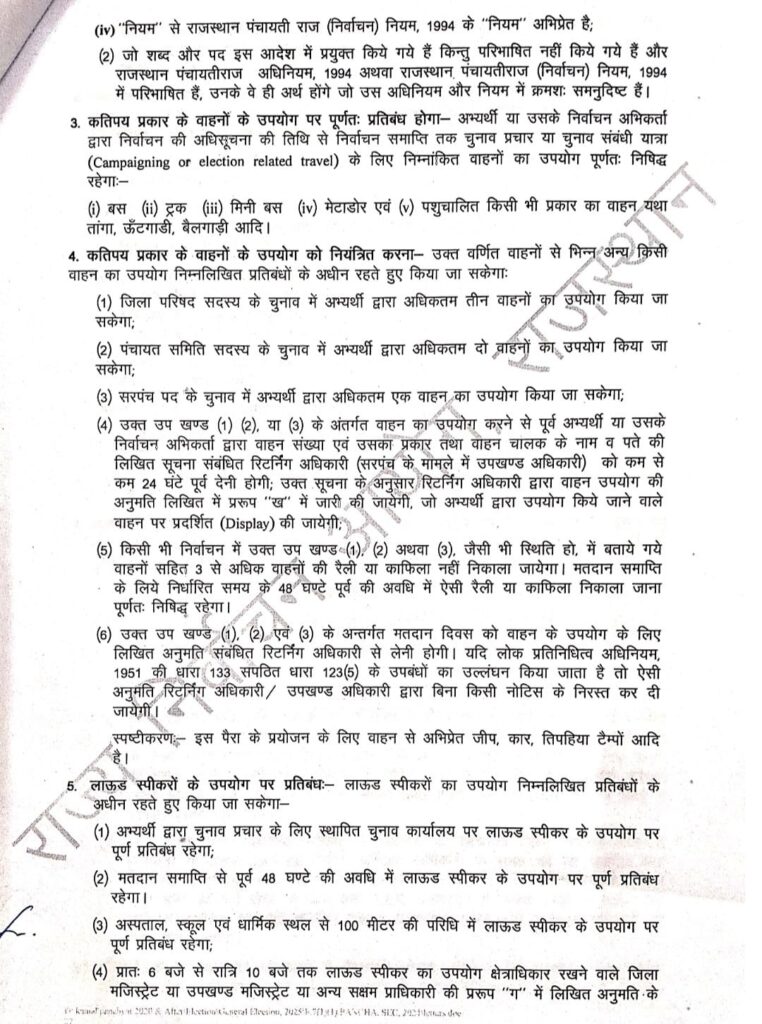 (iv) "नियम" से राजस्थान पंचायती राज (निर्वाचन) नियम, 1994 के "नियम" अभिप्रेत है;
(2) जो शब्द और पद इस आदेश में प्रयुक्त किये गये हैं किन्तु परिभाषित नहीं किये गये हैं और
राजस्थान पंचायतीराज अधिनियम, 1994 अथवा राजस्थान पंचायतीराज (निर्वाचन) नियम, 1994
में परिभाषित हैं, उनके वे ही अर्थ होंगे जो उस अधिनियम और नियम में क्रमशः समनुदिष्ट हैं।
3. कतिपय प्रकार के वाहनों के उपयोग पर पूर्णतः प्रतिबंध होगा– अभ्यर्थी या उसके निर्वाचन अभिकर्ता
द्वारा निर्वाचन की अधिसूचना की तिथि से निर्वाचन समाप्ति तक चुनाव प्रचार या चुनाव संबंधी यात्रा
(Campaigning or election related travel) के लिए निम्नांकित वाहनों का उपयोग पूर्णतः निषिद्ध
रहेगाः–
(i) बस (ii) ट्रक (iii) मिनी बस (iv) मेटाडोर एवं (v) पशुचालित किसी भी प्रकार का वाहन यथा
तांगा, ऊँटगाडी, बैलगाड़ी आदि।
4. कतिपय प्रकार के वाहनों के उपयोग को नियंत्रित करना– उक्त वर्णित वाहनों से भिन्न अन्य किसी
वाहन का उपयोग निम्नलिखित प्रतिबंधों के अधीन रहते हुए किया जा सकेगाः
(1) जिला परिषद सदस्य के चुनाव में अभ्यर्थी द्वारा अधिकतम तीन वाहनों का उपयोग किया जा
सकेगा;
(2) पंचायत समिति सदस्य के चुनाव में अभ्यर्थी द्वारा अधिकतम दो वाहनों का उपयोग किया जा
सकेगा;
(3) सरपंच पद के चुनाव में अभ्यर्थी द्वारा अधिकतम एक वाहन का उपयोग किया जा सकेगा;
(4) उक्त उप खण्ड (1) (2), या (3) के अंतर्गत वाहन का उपयोग करने से पूर्व अभ्यर्थी या उसके
निर्वाचन अभिकर्ता द्वारा वाहन संख्या एवं उसका प्रकार तथा वाहन चालक के नाम व पते की
लिखित सूचना संबंधित रिटर्निंग अधिकारी (सरपंच के मामले में उपखण्ड अधिकारी) को कम से
कम 24 घंटे पूर्व देनी होगी; उक्त सूचना के अनुसार रिटर्निंग अधिकारी द्वारा वाहन उपयोग की
अनुमति लिखित में प्ररूप "ख" में जारी की जायेगी, जो अभ्यर्थी द्वारा उपयोग किये जाने वाले
वाहन पर प्रदर्शित (Display) की जायेगी;
(5) किसी भी निर्वाचन में उक्त उप खण्ड (1), (2) अथवा (3), जैसी भी स्थिति हो, में बताये गये
वाहनों सहित 3 से अधिक वाहनों की रैली या काफिला नहीं निकाला जायेगा। मतदान समाप्ति
के लिये निर्धारित समय के 48 घण्टे पूर्व की अवधि में ऐसी रैली या काफिला निकाला जाना
पूर्णतः निषिद्ध रहेगा।
(6) उक्त उप खण्ड (1), (2) एवं (3) के अन्तर्गत मतदान दिवस को वाहन के उपयोग के लिए
लिखित अनुमति संबंधित रिटर्निंग अधिकारी से लेनी होगी। यदि लोक प्रतिनिधित्व अधिनियम,
1951 की धारा 133 सपठित धारा 123(5) के उपबंधों का उल्लंघन किया जाता है तो ऐसी
अनुमति रिटर्निंग अधिकारी/ उपखण्ड अधिकारी द्वारा बिना किसी नोटिस के निरस्त कर दी
जायेगी।
स्पष्टीकरणः– इस पैरा के प्रयोजन के लिए वाहन से अभिप्रेत जीप, कार, तिपहिया टैम्पों आदि
है।
5. लाऊड स्पीकरों के उपयोग पर प्रतिबंधः– लाऊड स्पीकरों का उपयोग निम्नलिखित प्रतिबंधों के
अधीन रहते हुए किया जा सकेगा–
(1) अभ्यर्थी द्वारा चुनाव प्रचार के लिए स्थापित चुनाव कार्यालय पर लाऊड स्पीकर के उपयोग पर
पूर्ण प्रतिबंध रहेगा;
(2) मतदान समाप्ति से पूर्व 48 घण्टे की अवधि में लाऊड स्पीकर के उपयोग पर पूर्ण प्रतिबंध
रहेगा।
(3) अस्पताल, स्कूल एवं धार्मिक स्थल से 100 मीटर की परिधि में लाऊड स्पीकर के उपयोग पर
पूर्ण प्रतिबंध रहेगा;
(4) प्रातः 6 बजे से रात्रि 10 बजे तक लाऊड स्पीकर का उपयोग क्षेत्राधिकार रखने वाले जिला
मजिस्ट्रेट या उपखण्ड मजिस्ट्रेट या अन्य सक्षम प्राधिकारी की प्ररूप "ग" में लिखित अनुमति के
राज्य निर्वाचन आयोग, राजस्थान